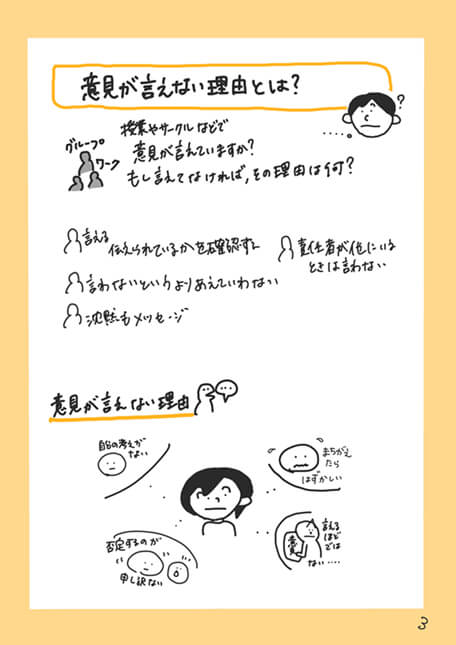 意見が言えない理由とは?
?
グループ
ワーク
授業やサークルなどで
意見が言えていますか?
もし言えてなければ,その理由は何?
言える
伝えられているかを確認する
言わないというよりあえていわない
沈黙もメッセージ
責任者が他にいる
ときは言わない
意見が言えない理由
自分の考えが
ない
まちがえ
たら
はずかしい
否定するのが
申し訳ない
言える
ほど
では
ない....
責
3